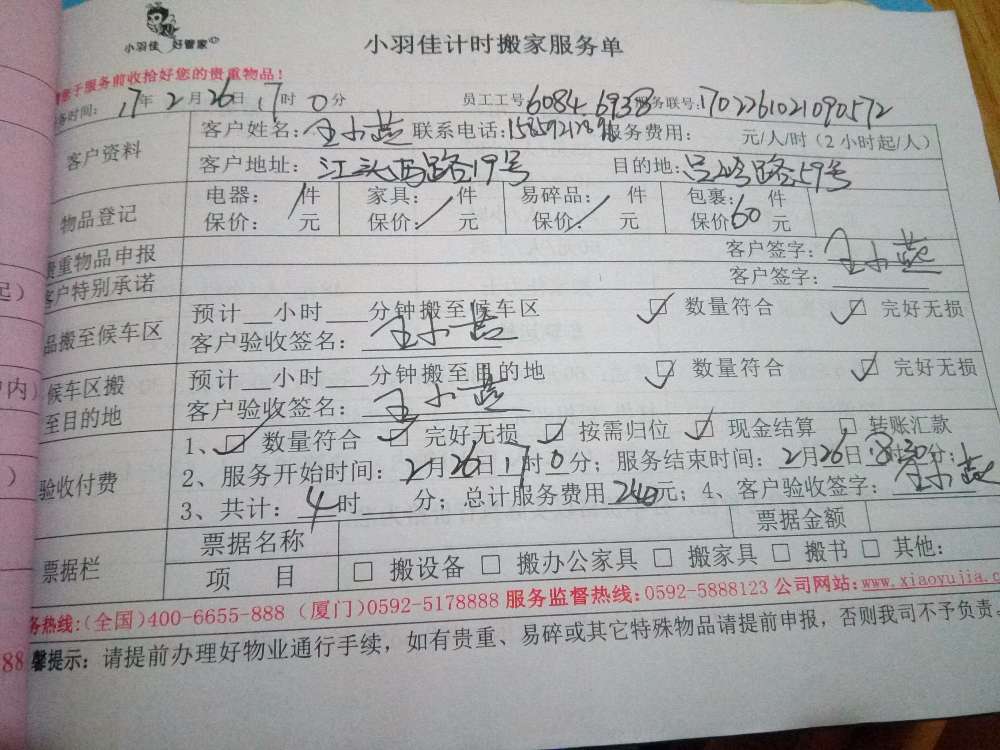 小羽佳 好管家
小羽佳计时搬家服务单
于服务前收拾好您的贵重物品！
务时间：17年2月26日17时0分 员工工号6084 6938 服务联号：1702261021090572
客户资料 客户姓名：王小燕 联系电话： 服务费用： 元/人/时（2小时起/人）
客户地址：江头西路19号 目的地：吕岭路59号
物品登记 电器：/件 家具：件 易碎品：件 包裹：件
保价：元 保价：/元 保价：/元 保价：60元
贵重物品申报 客户签字：王小燕
客户特别承诺 客户签字：
品搬至候车区 预计__小时___分钟搬至候车区 ☑ 数量符合 ☑ 完好无损
客户验收签名：王小燕
候车区搬至目的地 预计__小时___分钟搬至目的地 ☑ 数量符合 ☑ 完好无损
客户验收签名：王小燕
验收付费 1、☑ 数量符合 ☑ 完好无损 ☑ 按需归位 ☑ 现金结算 □ 转账汇款
2、服务开始时间：2月26日17时0分；服务结束时间：2月26日 时 分；
3、共计：4时 分；总计服务费用240元；4、客户验收签字：王小燕
票据栏 票据名称 票据金额
项 目 □ 搬设备 □ 搬办公家具 □ 搬家具 □ 搬书 □ 其他：
务热线：（全国）400-6655-888（厦门）0592-5178888 服务监督热线：0592-5888123 公司网站：www.xiaoyujia.c
馨提示：请提前办理好物业通行手续，如有贵重、易碎或其它特殊物品请提前申报，否则我司不予负责